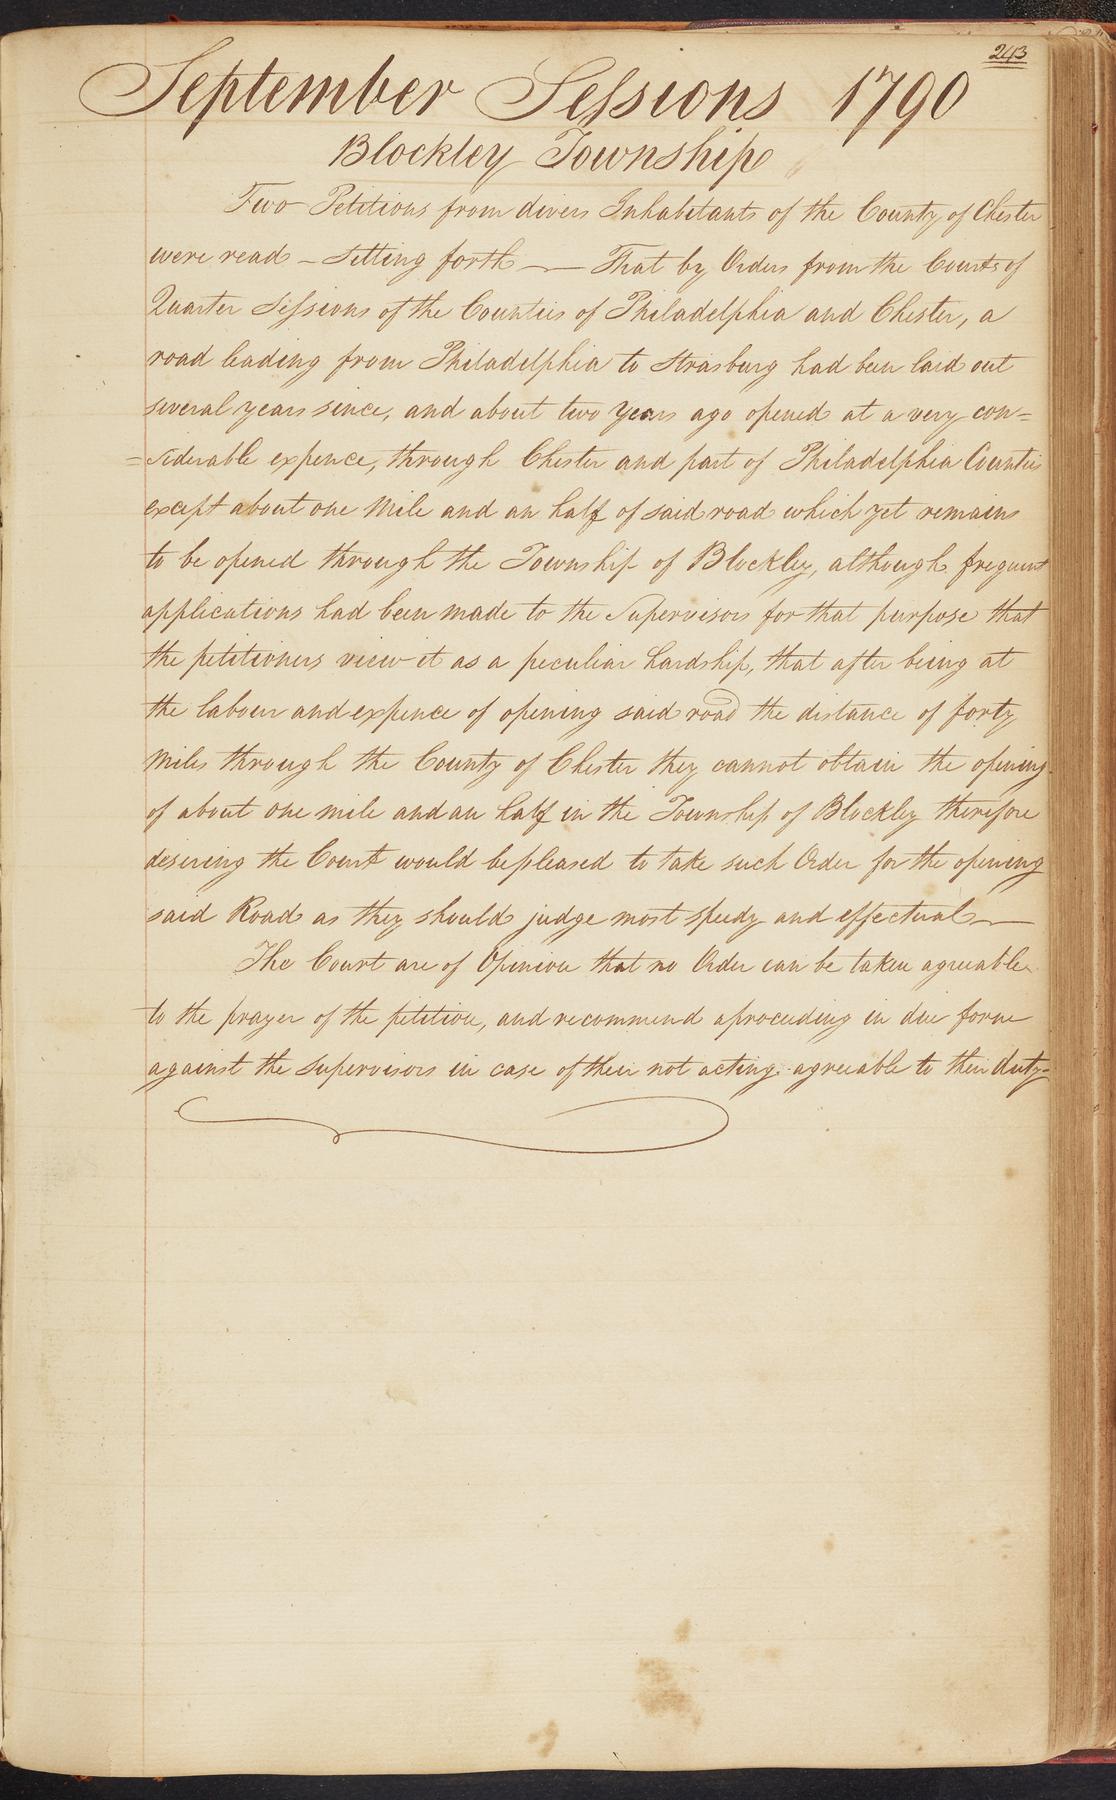 243
September Sessions 1790
Blockley Township
Two Petitions from divers Inhabitants of the County of Chester
were read – Setting forth — That by Orders from the Courts of
Quarter Sessions of the Counties of Philadelphia and Chester, a
road leading from Philadelphia to Strasburg had been laid out
several years since, and about two years ago opened at a very con=
=siderable expence, through Chester and part of Philadelphia Counties
except about one Mile and an half of said road which yet remains
to be opened through the Township of Blockley, although frequent
applications had been made to the Supervisors for that purpose that
the petitioners view it as a peculiar hardship, that after being at
the labour and expence of opening said road the distance of forty
Miles through the County of Chester they cannot obtain the opening
of about one mile and an half in the Township of Blockley therefore
desiring the Court would be pleased to take such Order for the opening
said Road as they should judge most speedy and effectual —
The Court are of Opinion that no Order can be taken agreeable
to the prayer of the petition, and recommend a proceeding in due form
against the Supervisors in case of their not acting agreeable to their duty–